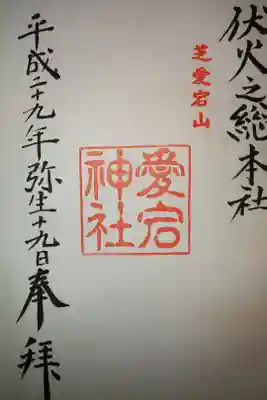 伏火之総本社
芝愛宕山
愛宕
神社
平成二十九年弥生十九日奉拝